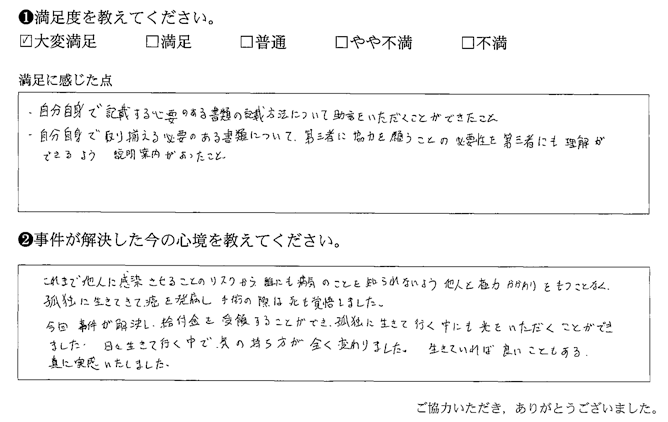 ❶満足度を教えてください。
☑大変満足 □満足 □普通 □やや不満 □不満
満足に感じた点
・自分自身で記載する必要のある書類の記載方法について助言をいただくことができたこと
・自分自身で取り揃える必要のある書類について、第三者に協力を願うことの必要性を第三者にも理解が
できるよう 説明案内があったこと
❷事件が解決した今の心境を教えてください。
これまで他人に感染させることのリスクから誰にも病気のことを知られないよう他人と極力関わりをもつことなく、
孤独に生きてきて癌を発症し手術の際は死も覚悟しました。
今回事件が解決し、給付金を受領することができ、孤独に生きて行く中にも光をいただくことができ
ました。日々生きて行く中で、気の持ち方が全く変わりました。生きていれば良いこともある、
真に実感いたしました。
ご協力いただき，ありがとうございました。